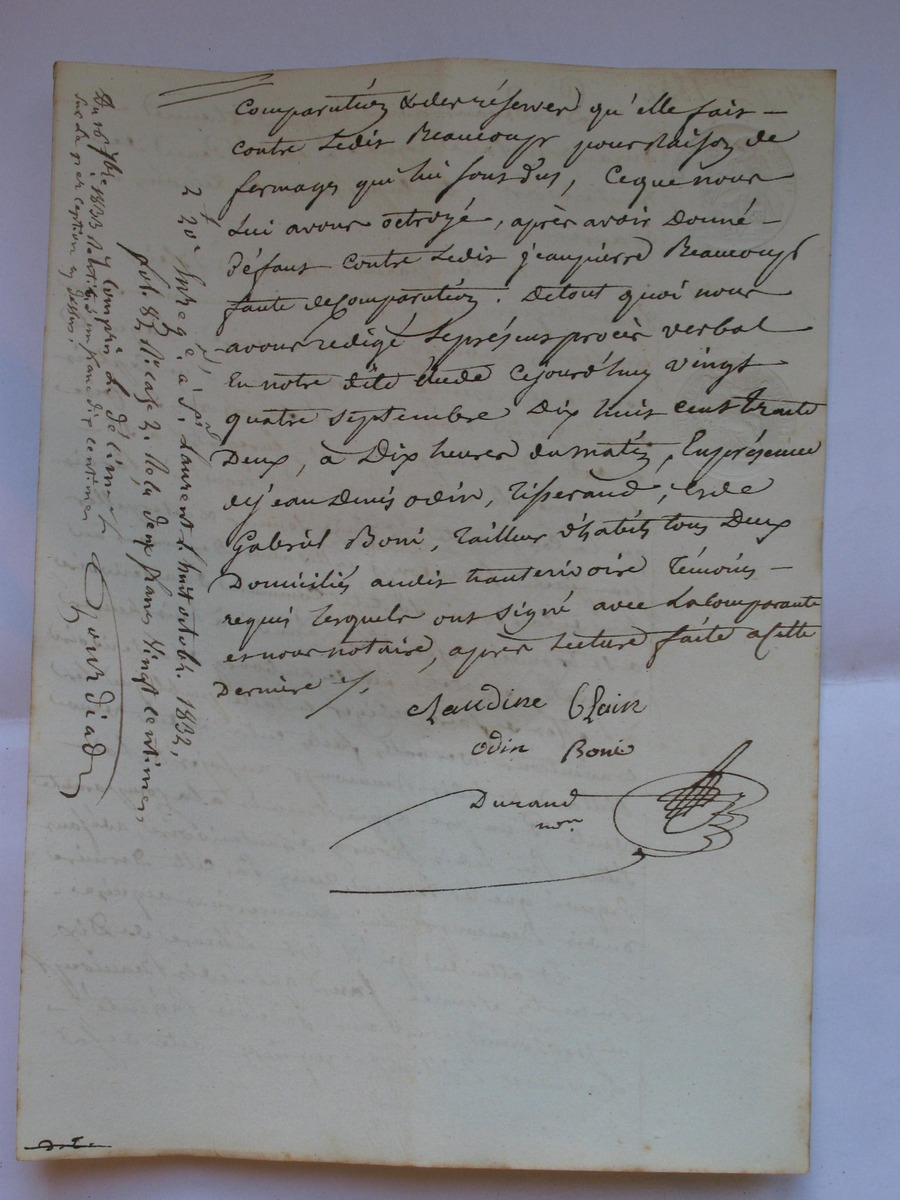 Comparution & des réserves qu'elle fait –
contre Ledit Beaucoup pour Raison de
fermages qui lui sont dus, Ceque nous
Lui avons octroyé, après avoir Donné –
Défaut contre Ledit jeanpierre Beaucoup
faute deComparution. Detout quoi nous
avons redigé Leprésent procès verbal
En notre dite étude Cejourd'huy vingt
quatre septembre Dix huit cent trente
Deux, à Dix heures dumatin, Enprésence
dejean Denis odin, Tisserand, et de
Gabriel Boni, Tailleur d'habits tous Deux
Domiciliés audit hauterivoire Témoins –
requis lesquels ont signé avec LaComparante
et nous notaire, après Lecture faite acette
Derniere
Claudine Blain
odin Boni
Durand
nore
Enregé. à St. Laurent huit octobr. 1832,
fol. 82 Rº. case 2. Reçu deux francs vingt centimes
y Compris le décime
Du 16 1833 un franc dix centimes
Sur la perception ci dessus.